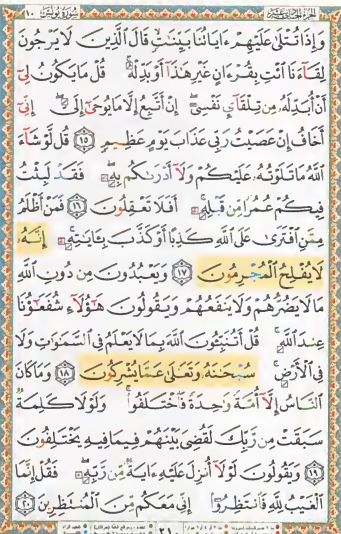 الجزء الحادي عشر سورة يونس ١٠
وَإِذَا تُتْلَىٰ عَلَيْهِمْ ءَايَاتُنَا بَيِّنَـٰتٍ قَالَ ٱلَّذِينَ لَا يَرْجُونَ
لِقَآءَنَا ٱئْتِ بِقُرْءَانٍ غَيْرِ هَـٰذَآ أَوْ بَدِّلْهُ ۚ قُلْ مَا يَكُونُ لِىٓ
أَنْ أُبَدِّلَهُۥ مِن تِلْقَآئِ نَفْسِىٓ ۖ إِنْ أَتَّبِعُ إِلَّا مَا يُوحَىٰٓ إِلَىَّ ۖ إِنِّىٓ
أَخَافُ إِنْ عَصَيْتُ رَبِّى عَذَابَ يَوْمٍ عَظِيمٍ ١٥ قُل لَّوْ شَآءَ
ٱللَّهُ مَا تَلَوْتُهُۥ عَلَيْكُمْ وَلَآ أَدْرَىٰكُم بِهِۦ ۖ فَقَدْ لَبِثْتُ
فِيكُمْ عُمُرًا مِّن قَبْلِهِۦٓ ۚ أَفَلَا تَعْقِلُونَ ١٦ فَمَنْ أَظْلَمُ
مِمَّنِ ٱفْتَرَىٰ عَلَى ٱللَّهِ كَذِبًا أَوْ كَذَّبَ بِـَٔايَـٰتِهِۦٓ ۚ إِنَّهُۥ
لَا يُفْلِحُ ٱلْمُجْرِمُونَ ١٧ وَيَعْبُدُونَ مِن دُونِ ٱللَّهِ
مَا لَا يَضُرُّهُمْ وَلَا يَنفَعُهُمْ وَيَقُولُونَ هَـٰٓؤُلَآءِ شُفَعَـٰٓؤُنَا
عِندَ ٱللَّهِ ۚ قُلْ أَتُنَبِّـُٔونَ ٱللَّهَ بِمَا لَا يَعْلَمُ فِى ٱلسَّمَـٰوَٰتِ وَلَا
فِى ٱلْأَرْضِ ۚ سُبْحَـٰنَهُۥ وَتَعَـٰلَىٰ عَمَّا يُشْرِكُونَ ١٨ وَمَا كَانَ
ٱلنَّاسُ إِلَّآ أُمَّةً وَٰحِدَةً فَٱخْتَلَفُوا۟ ۚ وَلَوْلَا كَلِمَةٌ
سَبَقَتْ مِن رَّبِّكَ لَقُضِىَ بَيْنَهُمْ فِيمَا فِيهِ يَخْتَلِفُونَ
١٩ وَيَقُولُونَ لَوْلَآ أُنزِلَ عَلَيْهِ ءَايَةٌ مِّن رَّبِّهِۦ ۖ فَقُلْ إِنَّمَا
ٱلْغَيْبُ لِلَّهِ فَٱنتَظِرُوٓا۟ إِنِّى مَعَكُم مِّنَ ٱلْمُنتَظِرِينَ ٢٠
٢١٠